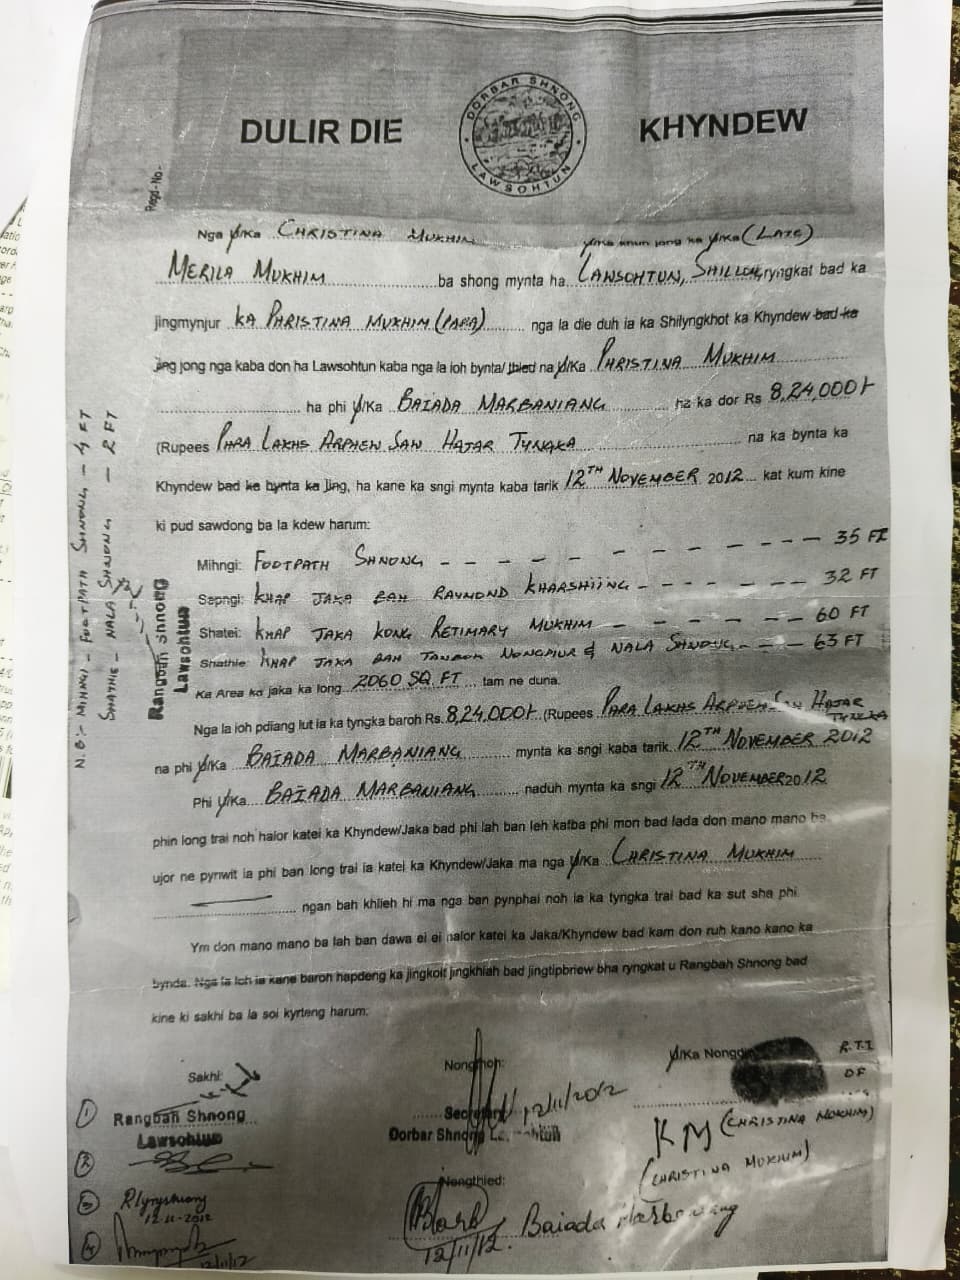 DULIR DIE
DORBAR SHNONG
LAWSOHTUN
KHYNDEW
Regd - No -
Nga U/Ka CHRISTINA MUKHIM U/Ka khun jong ka U/Ka (LATE)
MERILA MUKHIM ba shong mynta ha LAWSOHTUN, SHILLONG, ryngkat bad ka
jingmynjur KA PHRISTINA MUKHIM (PARA) nga la die duh ia ka Shilyngkhot ka Khyndew bad ka
jing jong nga kaba don ha Lawsohtun kaba nga la ioh bynta/ thied na U/Ka PHRISTINA MUKHIM
ha phi U/Ka BAIADA MARBANIANG ha ka dor Rs 8,24,000/-
(Rupees PHRA LAKHS ARPHEW SAW HAJAR TYNGKA na ka bynta ka
Khyndew bad ka bynta ka Jing, ha kane ka sngi mynta kaba tarik 12TH NOVEMBER 2012 kat kum kine
ki pud sawdong ba la kdew harum:
Mihngi: FOOTPATH SHNONG - - - - - - - - - 35 FT
Sepngi: KHAP JAKA BAH RAYMOND KHARSHIING - - - - - - 32 FT
Shatei: KHAP JAKA KONG RETIMARY MUKHIM - - - - - - 60 FT
Shathie: KHAP JAKA BAH NONGPIUR & NALA SHNONG - - - 63 FT
Ka Area ka jaka ka long 2060 SQ.FT tam ne duna.
Nga la ioh pdiang lut ia ka tyngka baroh Rs. 8,24,000/- (Rupees PHRA LAKHS ARPHEW SAW HAJAR
TYNGKA
na phi U/Ka BAIADA MARBANIANG mynta ka sngi kaba tarik 12TH NOVEMBER 2012
Phi U/Ka BAIADA MARBANIANG naduh mynta ka sngi 12TH NOVEMBER 2012
phin long trai noh halor katei ka Khyndew/Jaka bad phi lah ban leh katba phi mon bad lada don mano mano ba
ujor ne pynwit ia phi ban long trai ia katei ka Khyndew/Jaka ma nga U/Ka CHRISTINA MUKHIM
ngan bah khlieh hi ma nga ban pynphai noh ia ka tyngka trai bad ka sut sha phi.
Ym don mano mano ba lah ban dawa ei ei halor katei ka Jaka/Khyndew bad kam don ruh kano kano ka
bynda. Nga la ioh ia kane baroh hapdeng ka jingkoit jingkhiah bad jingtipbriew bha ryngkat u Rangbah Shnong bad
kine ki sakhi ba la soi kyrteng harum:
N.B:- MIHNGI - FOOTPATH SHNONG - 4 FT
SHATHIE - NALA SHNONG - 2 FT
Rangbah Shnong
Lawsohtun
Sakhi:
1
Rangbah Shnong
Lawsohtun
2
3
12-11-2012
4
12/11/12
Nongthoh:
12/11/2012
Secretary
Dorbar Shnong Lawsohtun
Nongthied:
Baiada Marbaniang
12/11/12.
U/Ka
R.T.I
OF
KM (CHRISTINA MUKHIM)
(CHRISTINA MUKHIM)